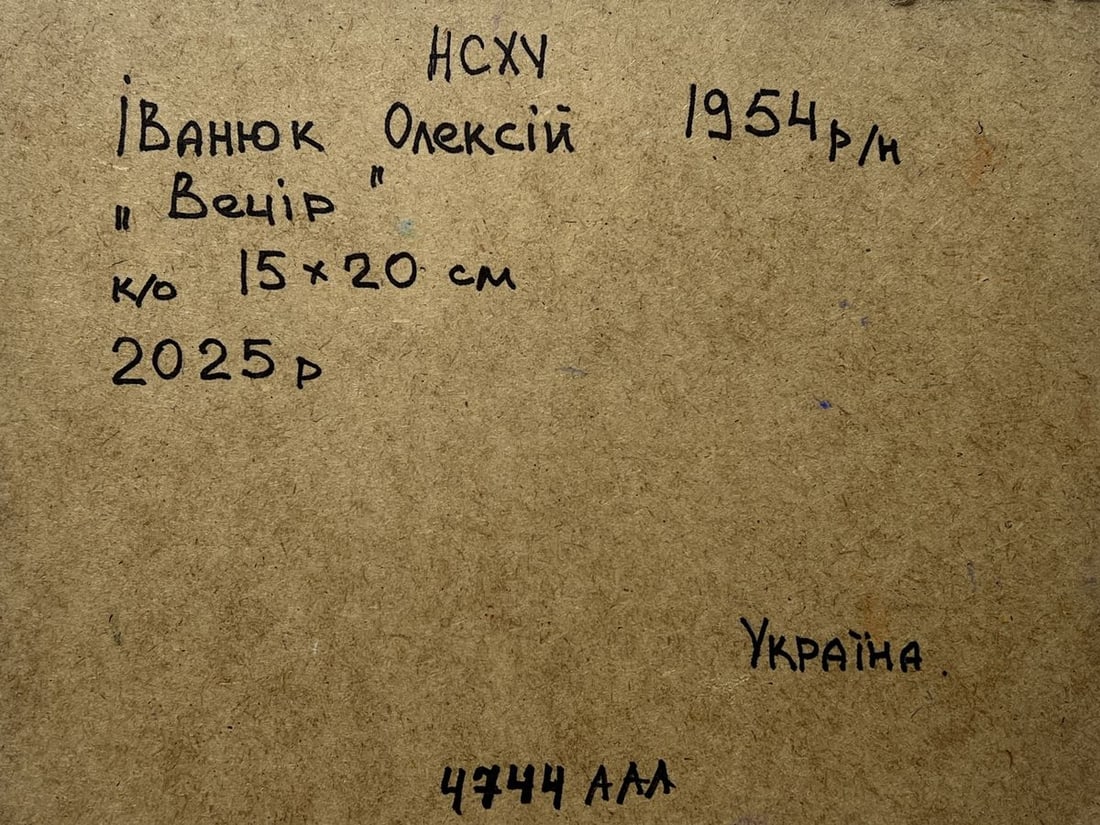 НСХУ
Іванюк Олексій 1954 р/н
„Вечір"
к/о 15×20 см
2025 р
Україна.
4744 ААА